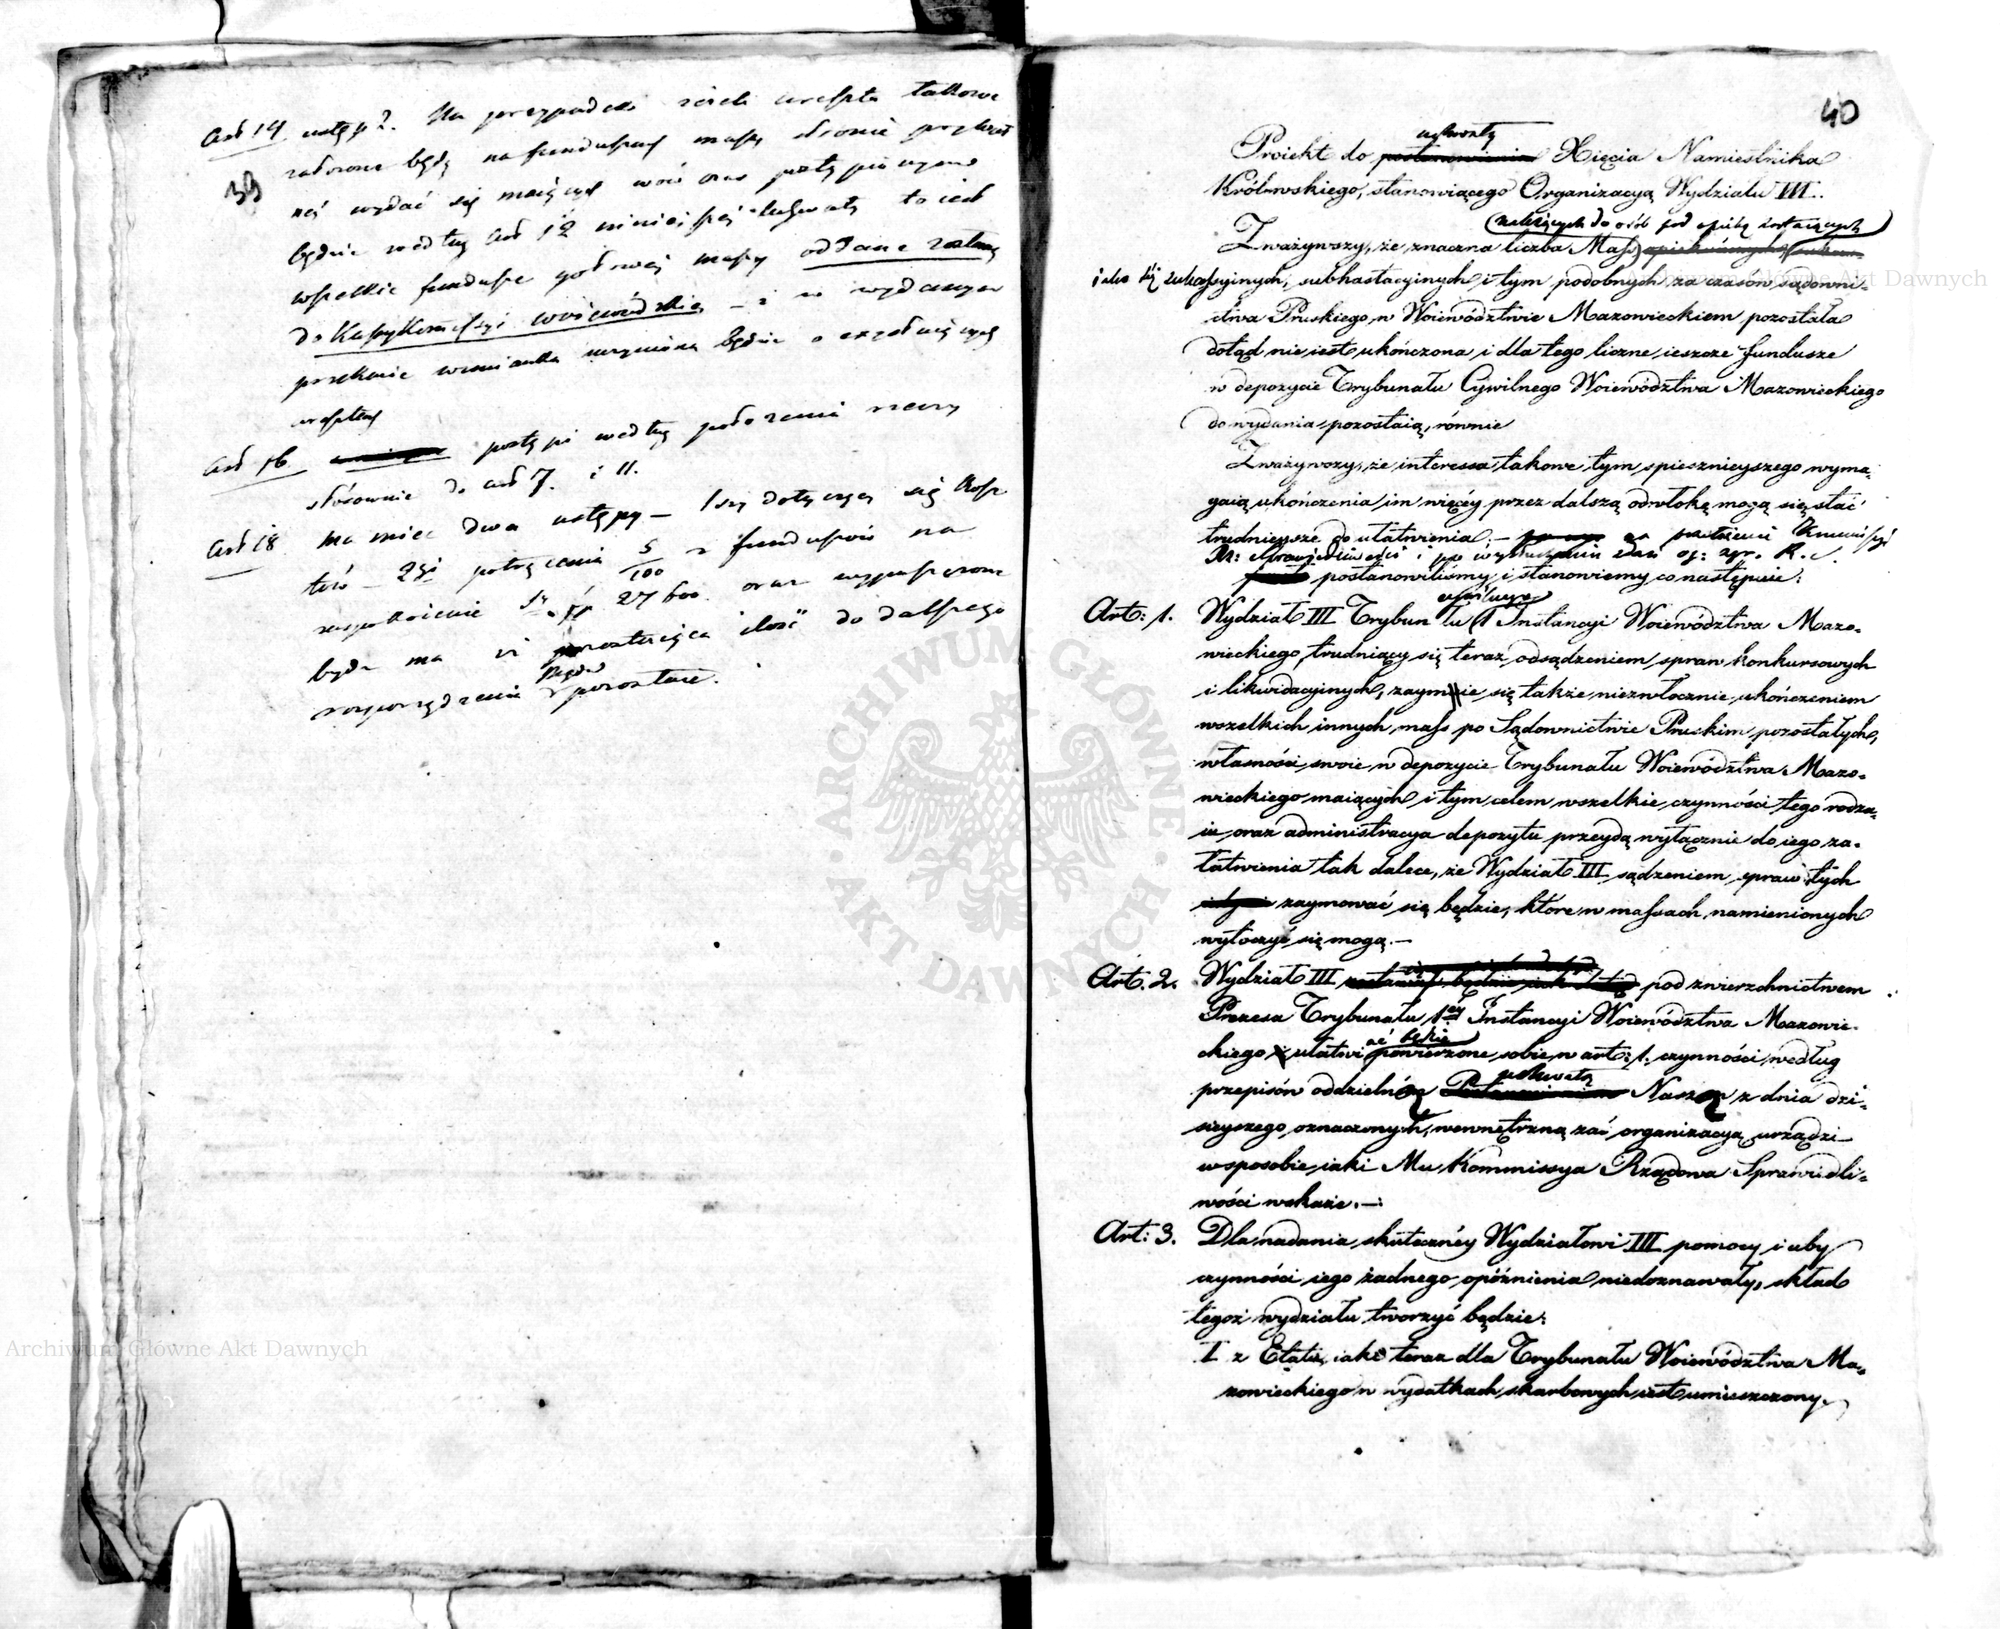 39
Art 14. ustęp 2. Na przypadek ieżeli areszta takowe
założone będą na funduszach massy stronie
wydać się maiących
będzie według Art 12 niniejszej Uchwały to iest
wszelkie fundusze gotowej massy oddane zostaną
do Kassy Kommissyi woiewódzkiej — i w wydanym
przekazie wzmianka uczyniona będzie o
Art 16. postąpi według położenia rzeczy
stosownie do art 7. i 11.
Art 18 ma mieć dwa ustępy — 1szy dotyczący się kosz
tów — 2gi potrącenia 5/100 z funduszów na
oraz wypuszczone
będą ma i pozostaiąca ilość do dalszego
rozporządzenia Rządu pozostaie.
40
Proiekt do postanowienia uchwały Xięcia Namiestnika
Królewskiego, stanowiącego Organizacyą Wydziału III.
należących do osób pod opieką zostaiących
Zważywszy, że znaczna liczba Mass
iako też edukacyinych, subhastacyinych i tym podobnych za czasów sądowni-
ctwa Pruskiego w Woiewództwie Mazowieckiem pozostała
dotąd nie iest ukończona i dla tego liczne ieszcze fundusze
w depozycie Trybunału Cywilnego Woiewództwa Mazowieckiego
do wydania pozostaią, równie
Zważywszy, że interessa takowe tym spieszniejszego wyma-
gaią ukończenia im więcéy przez dalszą odwłokę mogą się stać
trudnieysze do ułatwienia. — na przełożenie Kommissyi
Rz: Sprawiedliwości i po wysłuchaniu Zdań og: zgr. R. S.
postanowiliśmy i stanowiemy co następuie:
Art: 1. Wydział III Trybunału cywilnego 1 Instancyi Woiewództwa Mazo-
wieckiego, trudniący się teraz odsądzeniem spraw konkursowych
i likwidacyinych, zaymie się także niezwłocznie ukończeniem
wszelkich innych mass po Sądownictwie Pruskim pozostałych,
własności swoie w depozycie Trybunału Woiewództwa Mazo-
wieckiego maiących i tym celem wszelkie czynności tego rodza-
iu oraz administracya depozytu przeydą wyłącznie do iego za-
łatwienia tak dalece, że Wydział III sądzeniem spraw tych
zaymować się będzie, które w massach namienionych
wytoczyć się mogą. —
Art. 2. Wydział III zostawać będzie iak dotąd pod zwierzchnictwem
Prezesa Trybunału 1ey Instancyi Woiewództwa Mazowie-
ckiego i ułatwi ać będzie powierzone sobie w art: 1. czynności według
przepisów oddzielną Postanowieniem uchwałą Naszą z dnia dzi-
sieyszego oznaczonych, wewnętrzną zaś organizacyą urządzi
w sposobie, iaki Mu Kommissya Rządowa Sprawiedli-
wości wskaże. —
Art: 3. Dla nadania skutecznéy Wydziałowi III pomocy i aby
czynności iego żadnego opóźnienia niedoznawały, skład
tegoż wydziału tworzyć będzie:
I z Etatu, iaki teraz dla Trybunału Woiewództwa Ma-
zowieckiego w wydatkach skarbowych iest umieszczony.
ARCHIWUM GŁÓWNE AKT DAWNYCH
Archiwum Główne Akt Dawnych
Archiwum Główne Akt Dawnych